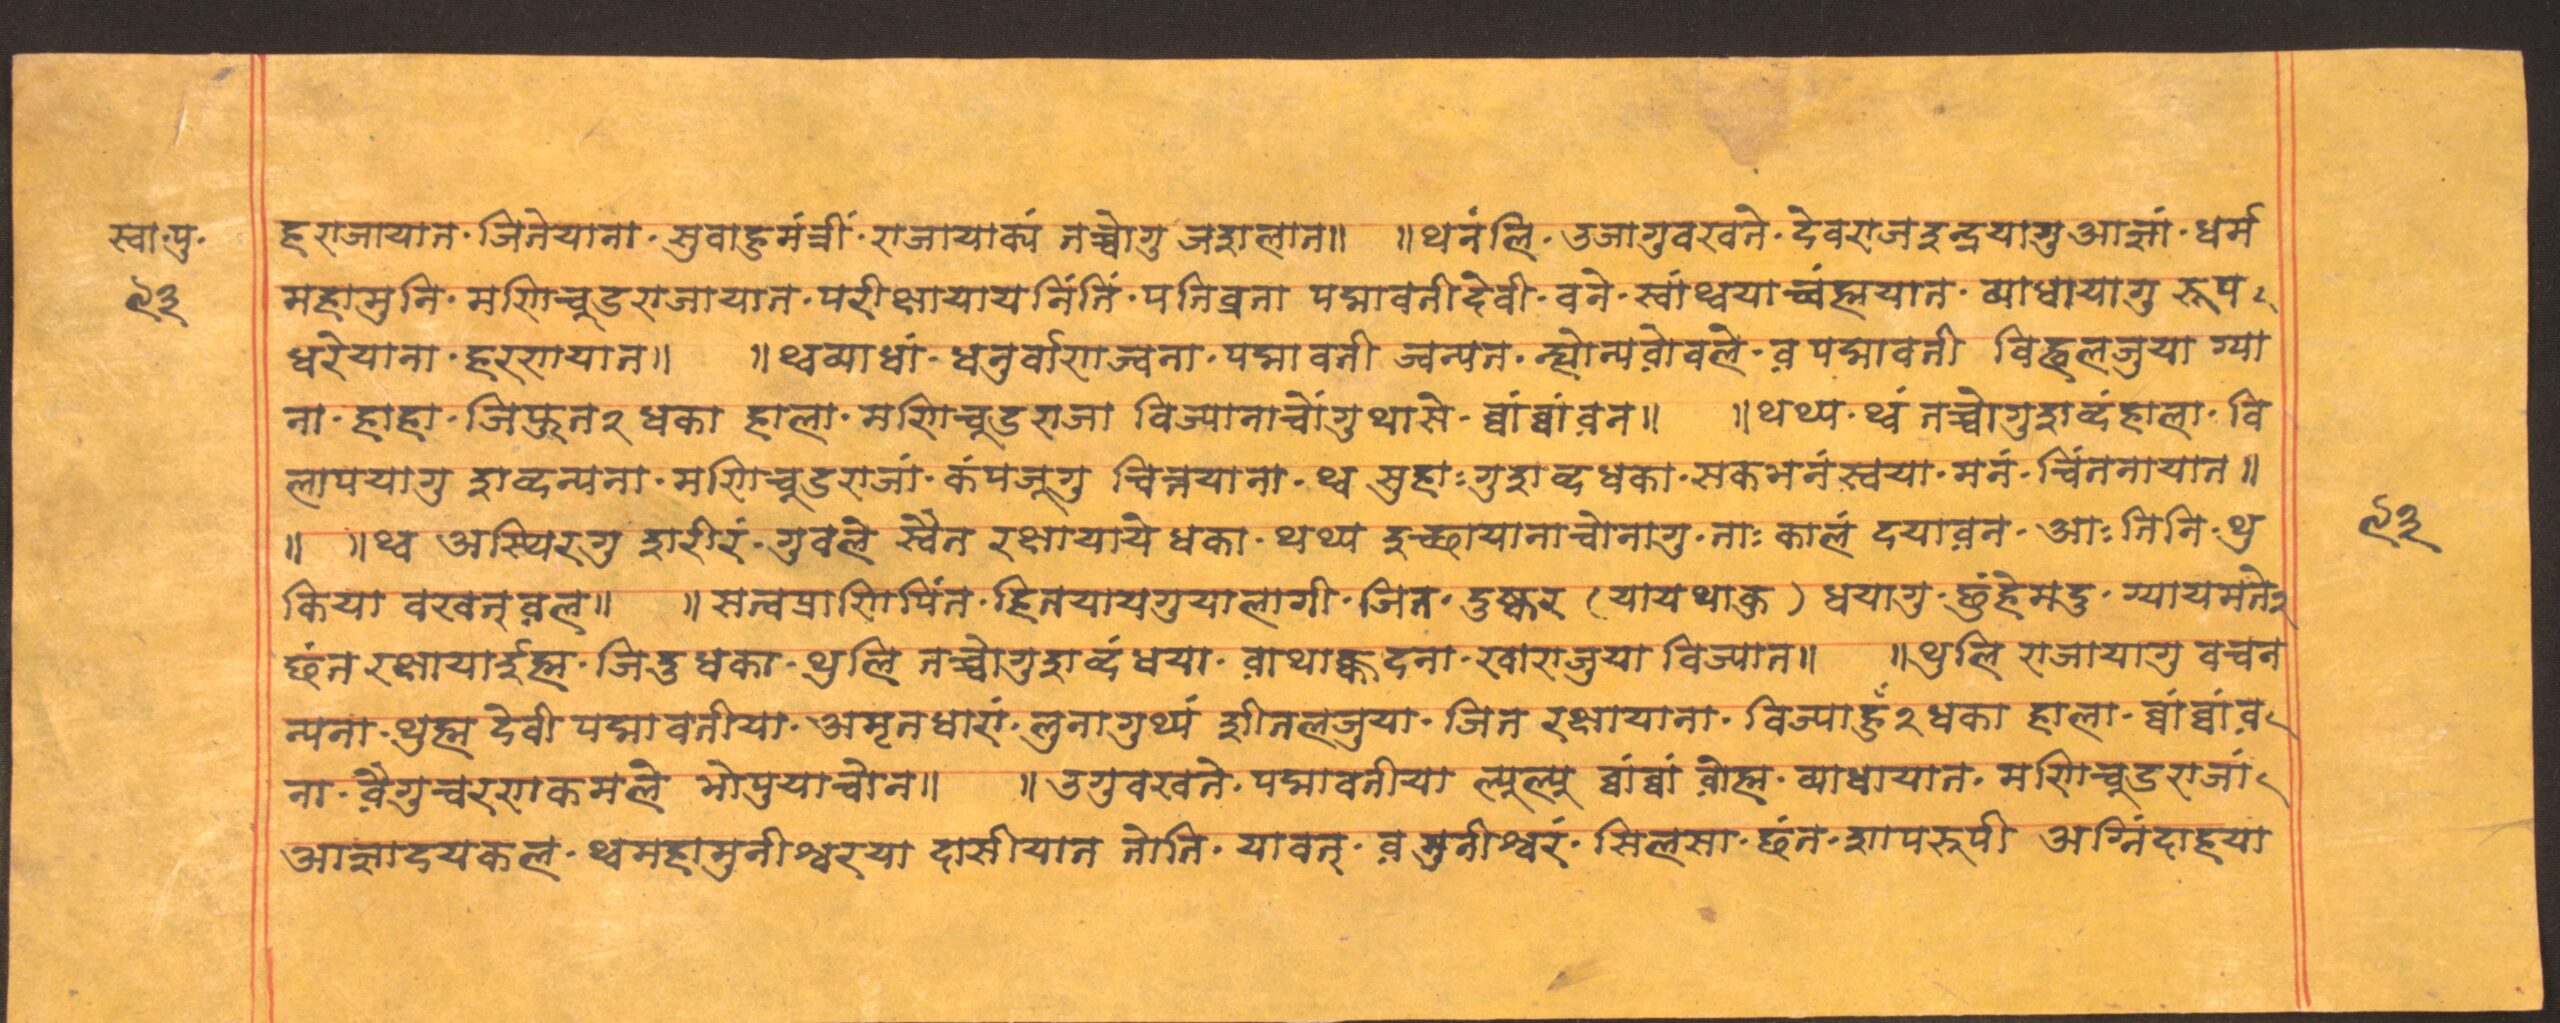 स्वा पु·
हराजायात·जितेयाना·सुवाहुमंत्रीं·राजायाक्यं तच्चोगु जइालात॥ ॥थनंलि·उजागुवखते·देवराजइन्द्रयागुआज्ञां·धर्म
९३
महामुनि·मणिचूडराजायात·परीक्षायायनिंतिं·पतिव्रता पद्मावतीदेवी·वने·स्वांथ्वयाच्वंह्मयात·व्याधायागु रूप
धरेयाना·हरणयात॥ ॥थ्वव्याधां·धनुर्वाणज्वना·पद्मावती ज्वन्यत·न्ह्योन्यवोवले·व़पद्मावती विह्वलजुया ग्या
ना·हाहा·जिफुत२ धका हाला·मणिचूडराजा विज्यानाचोंगुथासे·ब्वांब्वांव़न॥ ॥थथ्य·थ्वं तच्चोगुशब्दंहाला·वि
लापयागु शब्दन्यना·मणिचूडराजां·कंपजूगु चित्तयाना·थ्व सुहाःगुशब्दधका·सकभनंस्वया·मनं·चिंतनायात॥
॥ ॥थ्व अस्थिरगु शरीरं·गुवले स्वैत रक्षायाये धका·थथ्य इच्छायानाचोनागु·ताः कालं दयाव़न·आः तिनि·थु
९३
किया वखत्व़ल॥ ॥सत्वप्राणिपिंत·हितयायगुयालागी·जित·दुष्कर (यायथाकु) धयागु·छुंहेमदु·ग्यायमते२
छंत रक्षायाईह्म·जिदु धका·थुलि तच्चोगुशब्दं धया·व़ाथाङ्कदना·खाराजुया विज्यात॥ ॥थुलि राजायागु वचन
न्यना·थुह्म देवी पद्मावतीया·अमृतधारां·लुनागुथ्यं शीतलजुया·जित रक्षायाना·विज्याहुँ२ धका हाला·ब्वांब्वांव़
ना·व़ैगुचरणकमले भोपुयाचोन॥ ॥उगुवखते·पद्मावतीया ल्यूल्यू ब्वांब्वां व़ोह्म·व्याधायात·मणिचूडराजां
आज्ञादयकल·थ्वमहामुनीश्वरया दासीयात तोति·यावत्·व़मुनीश्वरं·सिलसा·छंत·शापरूपी अग्निंदाहया